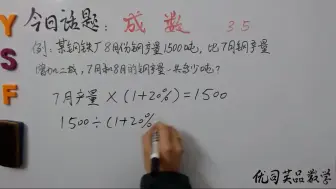 今日话题：成数 35
例：某钢铁厂8月份钢产量1500吨，比7月钢产量
增加二成，7月和8月的钢产量一共多少吨？
7月产量×(1+20%)=1500
1500÷(1+20%
YSF
优司英品数学